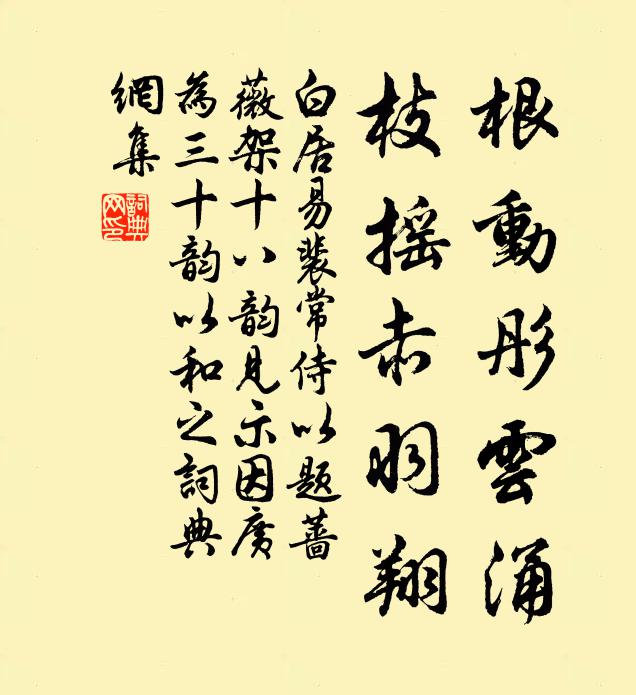 根動彤雲涌
枝摇赤羽翔
白居易裴常侍以题薔
薇架十八韵見示因廣
為三十韵以和之詞典
網集
詞典
网印